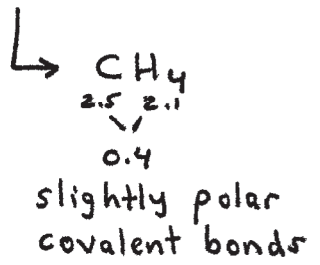 CH₄
2.5 2.1
0.4
slightly polar
covalent bonds